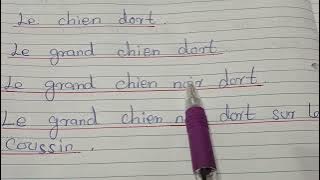 Le chien dort.
Le grand chien dort
Le grand chien noir dort.
Le grand chien dort sur le
coussin.